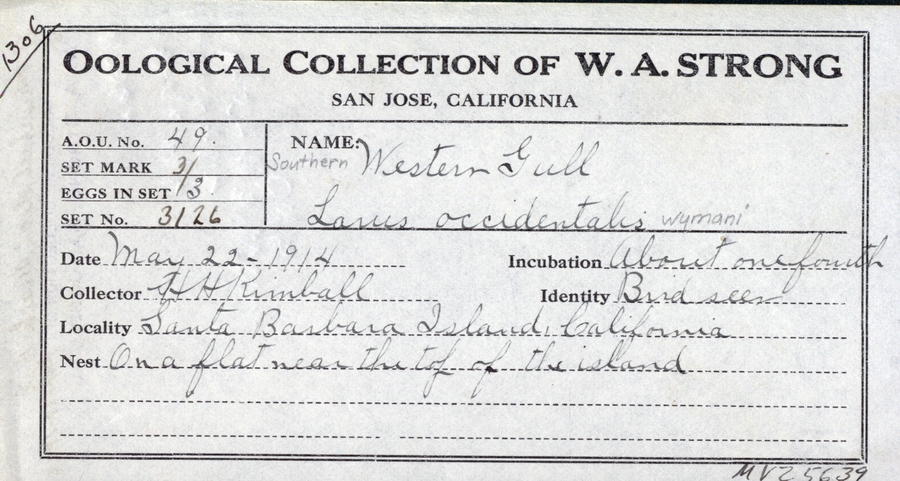 1306
OOLOGICAL COLLECTION OF W. A. STRONG
SAN JOSE, CALIFORNIA
A.O.U. No. 49.
SET MARK 3/
EGGS IN SET /3
SET No. 3126
NAME: Southern Western Gull
Larus occidentalis wymani
Date May 22 - 1914
Incubation About one fourth
Collector H H Kimball
Identity Bird seen
Locality Santa Barbara Island, California
Nest On a flat near the top of the island
MVZ 5639